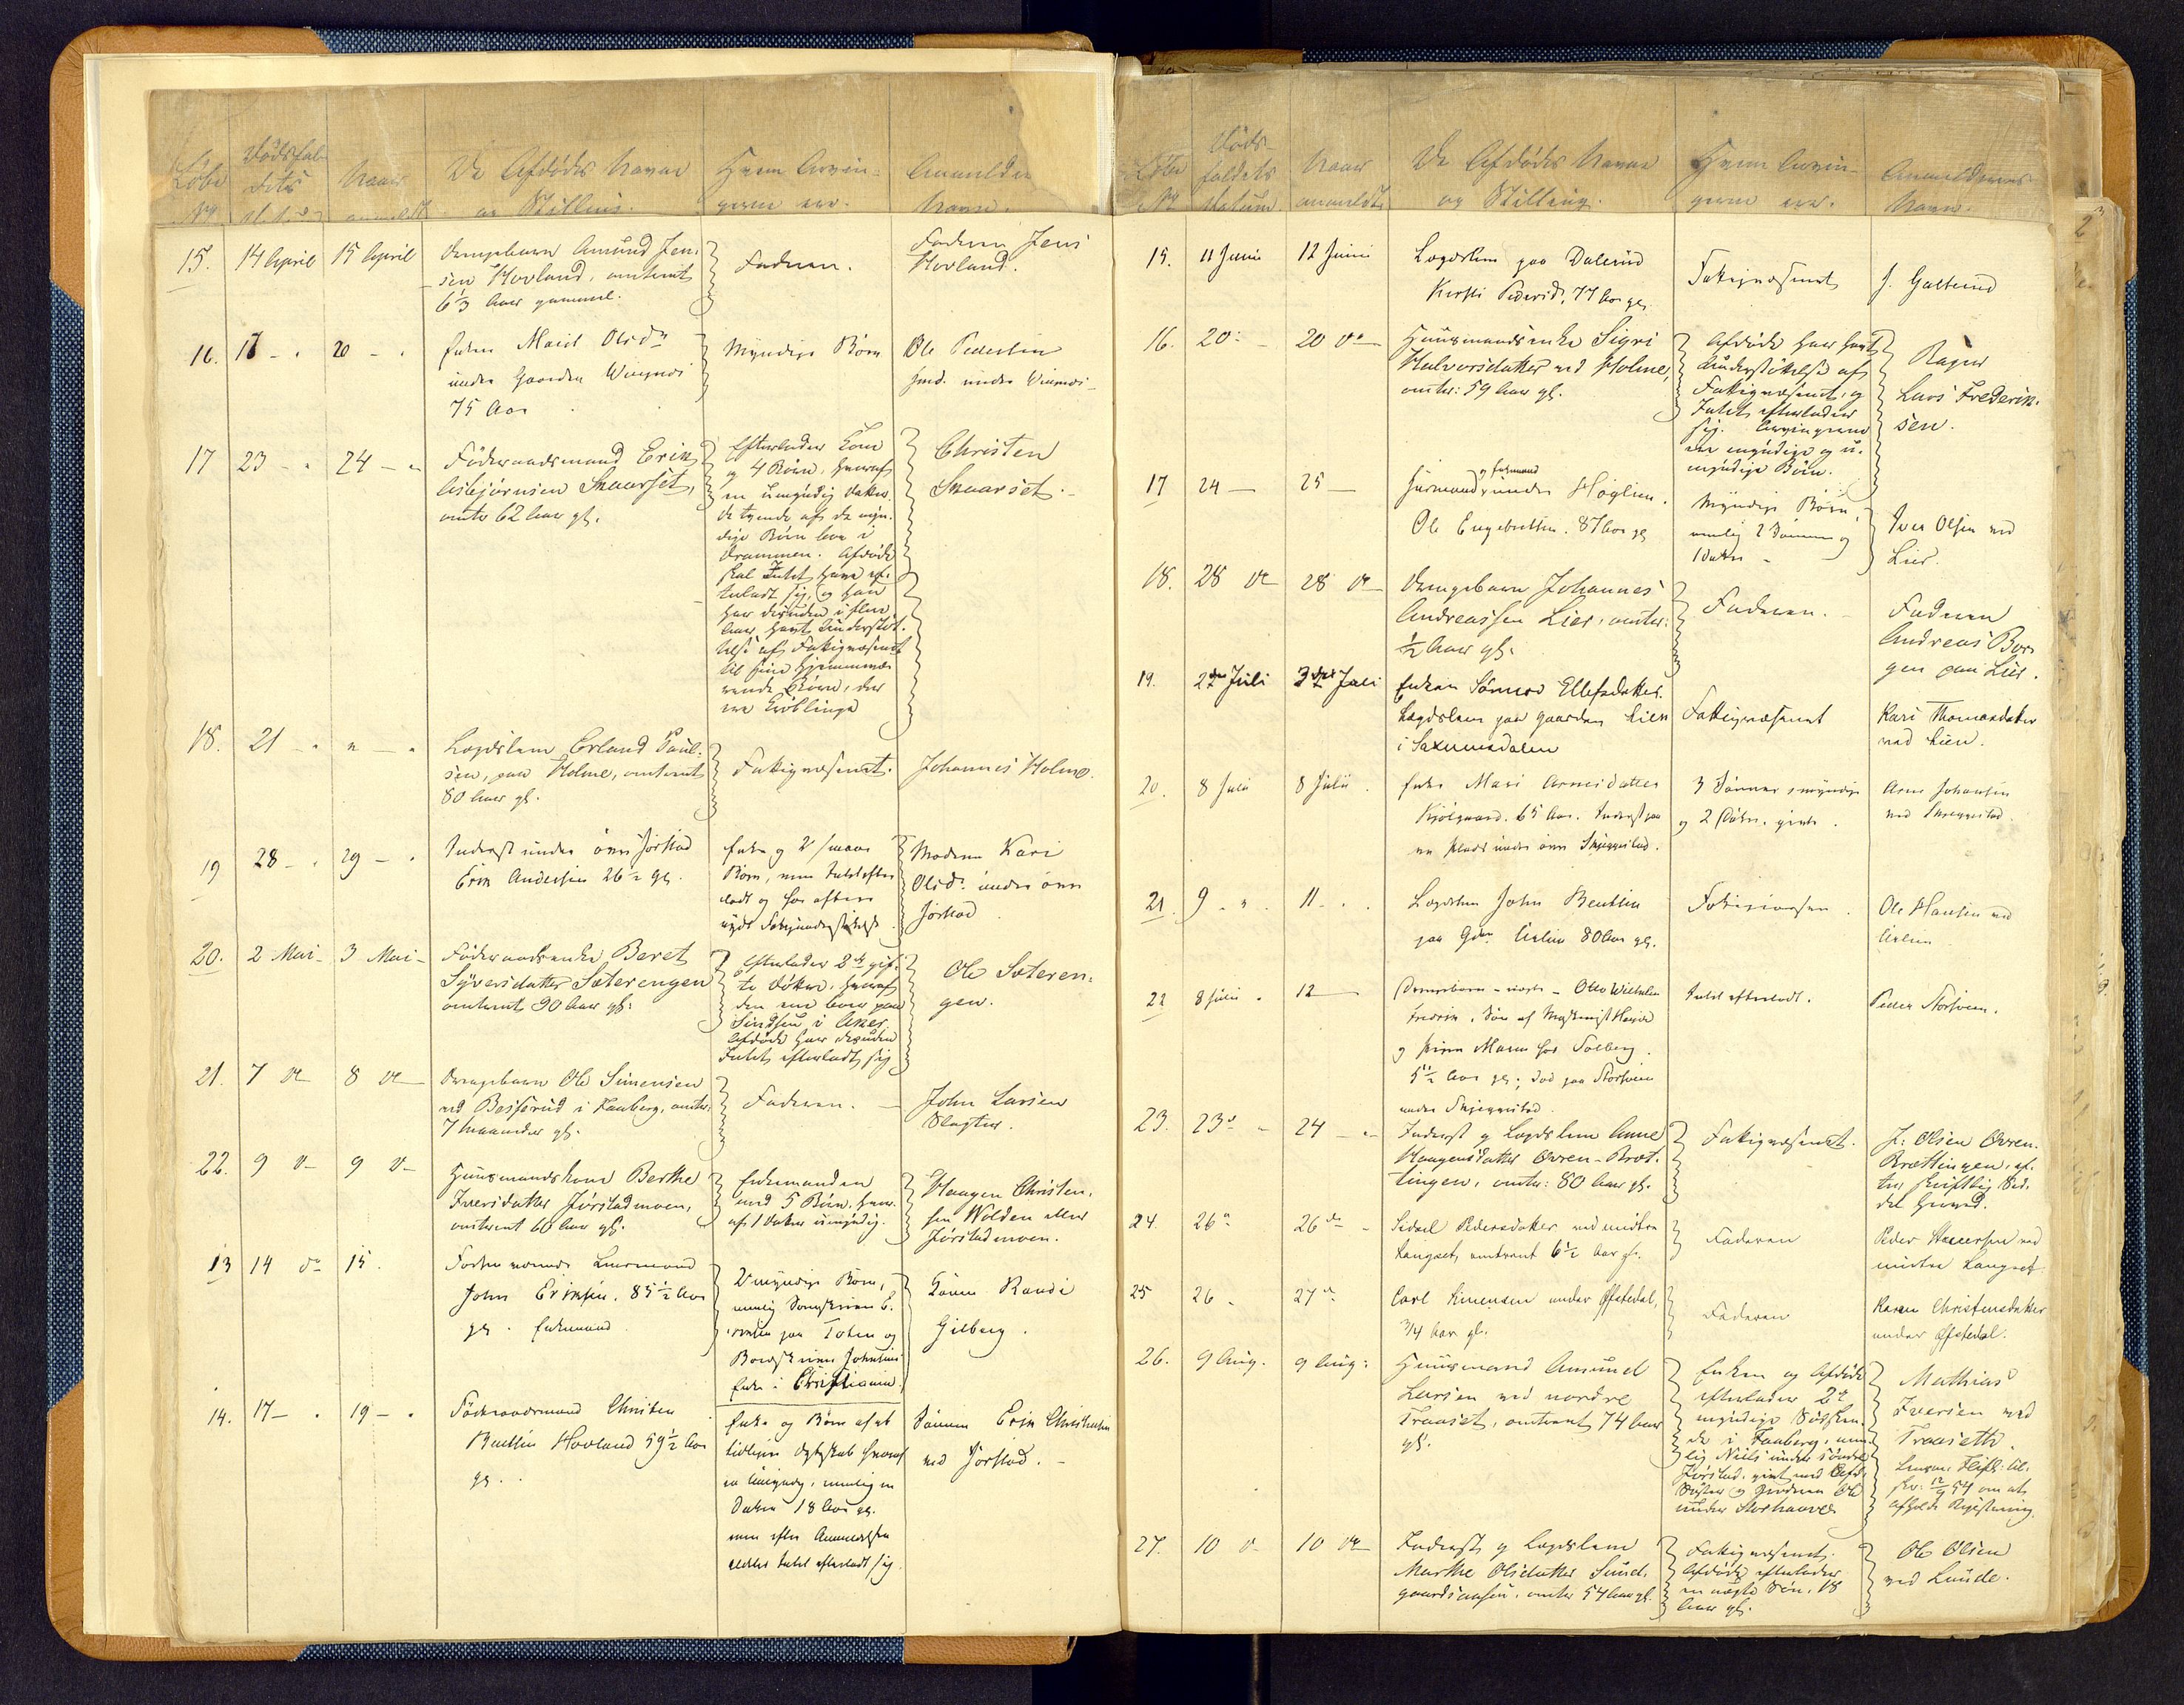 Löbe
No
Dödsfal-
dets
Naar
anmeldt
De Afdödes Navne
og Stilling.
Hvem Arvin-
gerne ere.
Anmelder
Navn.
15.
14 April
15 April
Drengebarn Amund Jen-
sen Hovland, omtrent
6 1/3 Aar gammel.
Faderen.
Faderen Jens
Hovland.
16.
20
Enken Marit Olsdr
under Gaarden
75 Aar
Myndige Börn
Ole Pedersen
under
17
23
24
Föderaadsmand Erik
Asbjörnsen Skaarset,
omtr 62 Aar gl.
Efterlader Kone
og 4 Börn, hvoraf
en umyndig Datter.
De tvende af de myn-
dige Börn bor i
Drammen. Afdöde
skal Intet have ef-
terladt sig, og han
har desuden i flere
Aar havt Understöt-
telse af Fattigvæsenet
til sine hjemmevæ-
rende Börn, der
ere Kröblinge
Christen
Skaarset.
18.
21
Lægdslem Erland Paul-
sen, paa Holme, omtrent
80 Aar gl.
Fattigvæsenet.
Johannes Holme.
19
28
29
Inderst under övre Jörstad
Erik Andersen 26 1/2 gl.
Enke og 2 smaae
Börn, men Intet efter-
ladt og har oftere
nydt
Moderen Kari
Olsdr under övre
Jörstad
20.
2 Mai
3 Mai
Föderaadsenke Beret
Syversdatter Sæterengen
omtrent 90 Aar gl.
Efterlader 2de gif-
te Döttre, hvoraf
den ene boer paa
i Aker
Afdöde har desuden
Intet efterladt sig
Ole Sæteren-
gen.
21.
7 do
8 do
Drengebarn Ole Simensen
ved Bæsserud i Faaberg, omtr.
7 Maaneder gl.
Faderen.
John Larsen
Slagter.
22.
9 do
9 do
Huusmandskone Berthe
Iversdatter Jörstadmoen,
omtrent 60 Aar gl.
Enkemanden
med 5 Börn, hvor-
af 1 Datter umyndig.
Haagen Christen-
sen Volden eller
Jörstadmoen.
13
14 do
15.
Forhenværende Lensmand
John Eriksen, 85 1/2 Aar
gl. Enkemand
2 myndige Börn,
nemlig
paa Toten og
Enke i Christiania.
Konen Randi
Gilberg.
14.
17
19
Föderaadsmand Christen
Hovland 59 1/2 Aar
gl.
Enke og Börn af et
tidligere Ægteskab hvoraf
en umyndig, nemlig en
Datter 18 Aar gl.
men efter Anmeldelsen
Intet efterladt sig.
Sönnen Erik Christensen
ved Jörstad.
Löbe
No
Döds-
faldets
Datum.
Naar
anmeldt.
De Afdödes Navne
og Stilling.
Hvem Arvin-
gerne ere.
Anmelderens
Navn.
15.
11 Juni
12 Juni
Lægdslem paa Dalerud
Kirsti Pedersd. 77 Aar gl.
Fattigvæsenet
J. Galterud
16.
20
20 do
Huusmandsenke Sigri
Halvorsdatter ved Holme,
omtr. 59 Aar gl.
Afdöde har havt
Understöttelse af
Fattigvæsenet, og
Intet efterlader
sig. Arvingerne
ere myndige og u-
myndige Börn.
Lars Frederik-
sen.
17
24
25
og Enkemand
Huusmand under Höglien.
Ole Engebretsen. 87 Aar gl
Myndige Börn,
nemlig 2 Sönner og
1 Datter
Iver Olsen ved
Lier.
18.
28 do
28 do
Drengebarn Johannes
Andreassen Lier, omtr.
1/2 Aar gl.
Faderen.
Faderen
Andreas Bor-
gen paa Lier.
19.
2den Juli
3die Juli
Enken Ellefsdatter.
Lægdslem paa Gaarden Lien
i Saxumsdalen
Fattigvæsenet
Kari Thomasdatter
ved Lien.
20.
8 Juli
8 Juli
Enke Mari Arnesdatter
65 Aar. Inderst paa
en Plads under övre Skjeggestad.
3 Sönner myndige
og 2 Döttre, givte.
Arne Johansen
ved Skjeggestad.
21.
9
11
Lægdslem John Bentsen
paa 80 Aar gl.
Fattigvæsen.
Ole Hansen ved
22
8 Juli
12
Drengebarn - uægte - Otto Wilhelm
Fredrik, Sön af
og Maren hos Solberg.
5 1/2 Aar gl., död paa Storsveen
under Skjeggestad.
Intet efterladt.
Peder Storsveen.
23.
23
24
Inderst og Lægdslem Anne
Haagensdatter Owren-Bræt-
tingen, omtr. 80 Aar gl.
Fattigvæsenet.
J. Olsen Owren-
Brættingen, ef-
ter skriftlig Sed-
del herved.
24.
26
26 do
Sidsel Pedersdatter ved midtre
Langset, omtrent 6 1/2 Aar gl.
Faderen
Peder ved
midtre Langset
25
26
27
Carl Simensen under Ofstedal,
3/4 Aar gl.
Faderen
Karen Christensdatter
under Ofstedal.
26.
9 Aug.
9 Aug.
Huusmand Amund
Larsen ved nordre
Traaset, omtrent 74 Aar
gl.
Enken og Afdöde
efterlader 2de
myndige Södsken-
de i Faaberg, nem-
lig Niels under söndre
Jörstad, givt med Afd.
Söster og Broderen Ole
under Storhaave.
Mathias
Iversen ved
Traaseth.
27.
10 do
10 do
Inderst og Lægdslem
Marthe Olsdatter Sund-
gaardsaasen, omtr 54 Aar gl.
Fattigvæsenet.
Afdöde efterlader
en uægte Sön, 18
Aar gl.
Ole Olsen
ved Lunde.